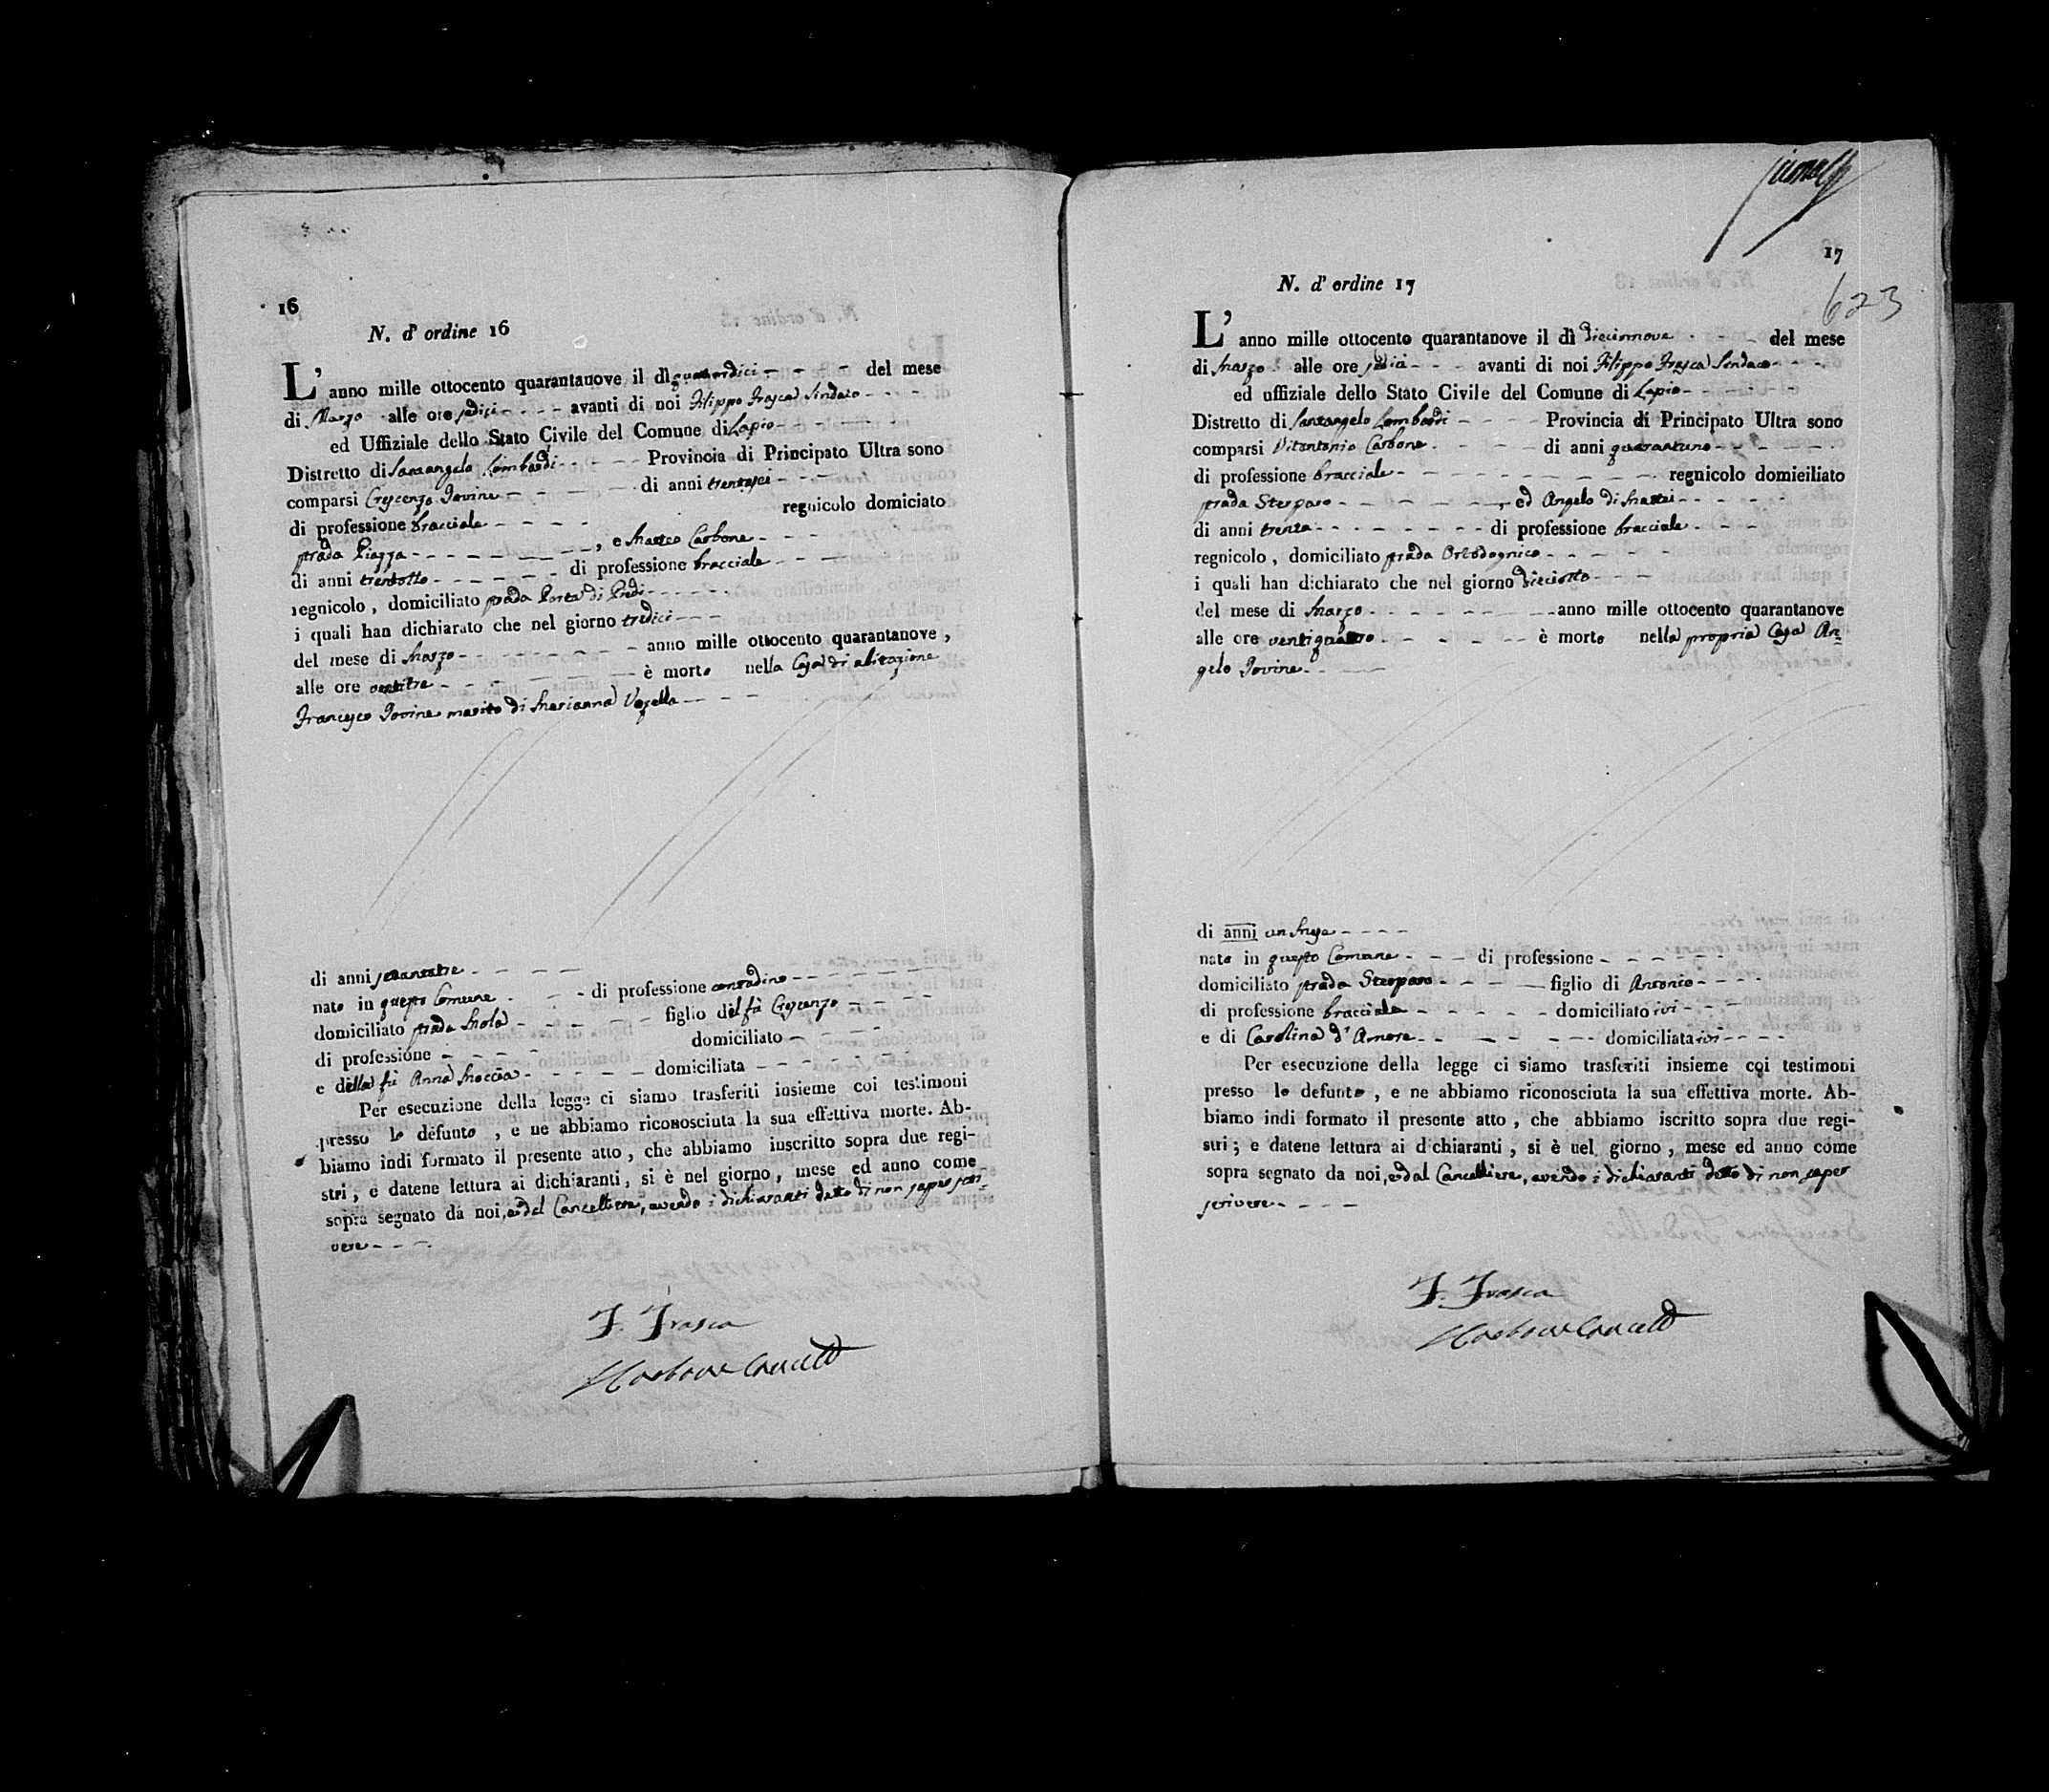 16
N. d' ordine 16
L' anno mille ottocento quarantanove il dì quattordici - - - - del mese
di Marzo alle ore sedici - - - - avanti di noi Filippo Frasca Sindaco - - - -
ed Uffiziale dello Stato Civile del Comune di Lapio - - - - - -
Distretto di Santangelo Lombardi - - - - - Provincia di Principato Ultra sono
comparsi Crescenzo Iovine - - - - - di anni trentasei - - - -
di professione bracciale - - - - regnicolo domiciato
strada Piazza - - - - - - - - , e Matteo Carbone - - - -
di anni trentotto - - - - - - di professione bracciale - - - -
regnicolo , domiciliato strada Porta di Piedi - - - - -
i quali han dichiarato che nel giorno tredici - - -
del mese di Marzo - - - - - - - anno mille ottocento quarantanove ,
alle ore ventitre - - - - - - - è morto nella Casa di abitazione
Francesco Iovine marito di Marianna Vozella - - - -
di anni settantatre - - - - -
nato in questo Comune - - - di professione contadino - - - - - -
domiciliato strada Mola - - - - - figlio del fù Crescenzo - - - -
di professione - - - - domiciliato - - - -
e della fù Anna Moccia - - - - - domiciliata - - - - - -
Per esecuzione della legge ci siamo trasferiti insieme coi testimoni
presso lo defunto , e ne abbiamo riconosciuta la sua effettiva morte. Ab-
biamo indi formato il presente atto , che abbiamo inscritto sopra due regi-
stri , e datene lettura ai dichiaranti, si è nel giorno, mese ed anno come
sopra segnato da noi, e dal Cancelliere, avendo i dichiaranti detto di non saper scri-
vere - - - .
F. Frasca
17
623
N. d' ordine 17
L' anno mille ottocento quarantanove il dì diciannove - - - del mese
di Marzo alle ore sedici - - - avanti di noi Filippo Frasca Sindaco - - - -
ed uffiziale dello Stato Civile del Comune di Lapio - - - - - -
Distretto di Santangelo Lombardi - - - - Provincia di Principato Ultra sono
comparsi Vitantonio Carbone - - - - di anni quarantuno - - - - -
di professione bracciale - - - - - - - - - regnicolo domieiliato
strada Sterparo - - - - - - - , ed Angelo di Mattei - - - - -
di anni trenta - - - - - - - - di professione bracciale - - - -
regnicolo , domiciliato strada Ortodognico - - - - - -
i quali han dichiarato che nel giorno dieciotto - - -
del mese di Marzo - - - - - - - anno mille ottocento quarantanove
alle ore ventiquattro - - - - - - è morto nella propria Casa An=
gelo Iovine - - -
di anni un Mese - - - -
nato in questo Comune - - - di professione - - - - - -
domiciliato strada Sterparo - - - - figlio di Antonio - - - -
di professione bracciale - - - - - domiciliato ivi - - - -
e di Carolina d' Amore - - - - - - domiciliata ivi - - - -
Per esecuzione della legge ci siamo trasferiti insieme coi testimoni
presso lo defunto , e ne abbiamo riconosciuta la sua effettiva morte. Ab-
biamo indi formato il presente atto , che abbiamo iscritto sopra due regi-
stri ; e datene lettura ai d chiaranti , si è nel giorno , mese ed anno come
sopra segnato da noi, e dal Cancelliere, avendo i dichiaranti detto di non saper
scrivere - - - -
F. Frasca